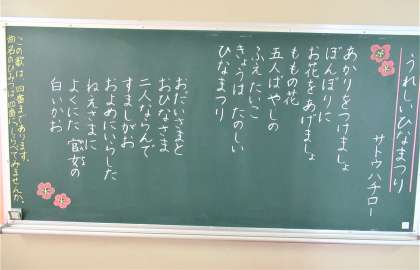 うれしいひなまつり
サトウハチロー
あかりをつけましょ
ぼんぼりに
お花をあげましょ
ももの花
五人ばやしの
ふえたいこ
きょうは たのしい
ひなまつり
おだいりさまと
おひなさま
二人ならんで
すましがお
およめにいらした
ねえさまに
よくにた 官女の
白いかお
この歌は、四番まであります。